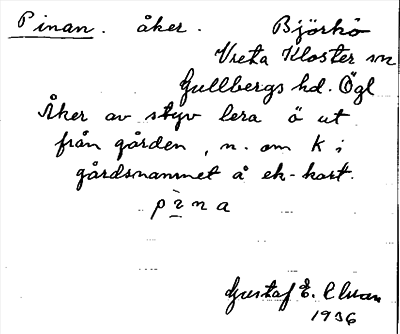 Pinan. åker. Björkö
Vreta Kloster sn
Gullbergs hd. Ögl
Åker av styv lera ö ut
från gården, n. om K i
gårdsnamnet å ek-kart.
pìna
Gustaf E.
1936